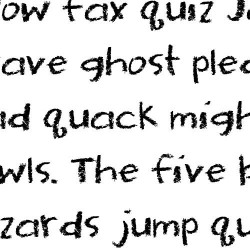 ow fax quiz J
ave ghost plea
ad quack might
wls. The five b
zards jump qu